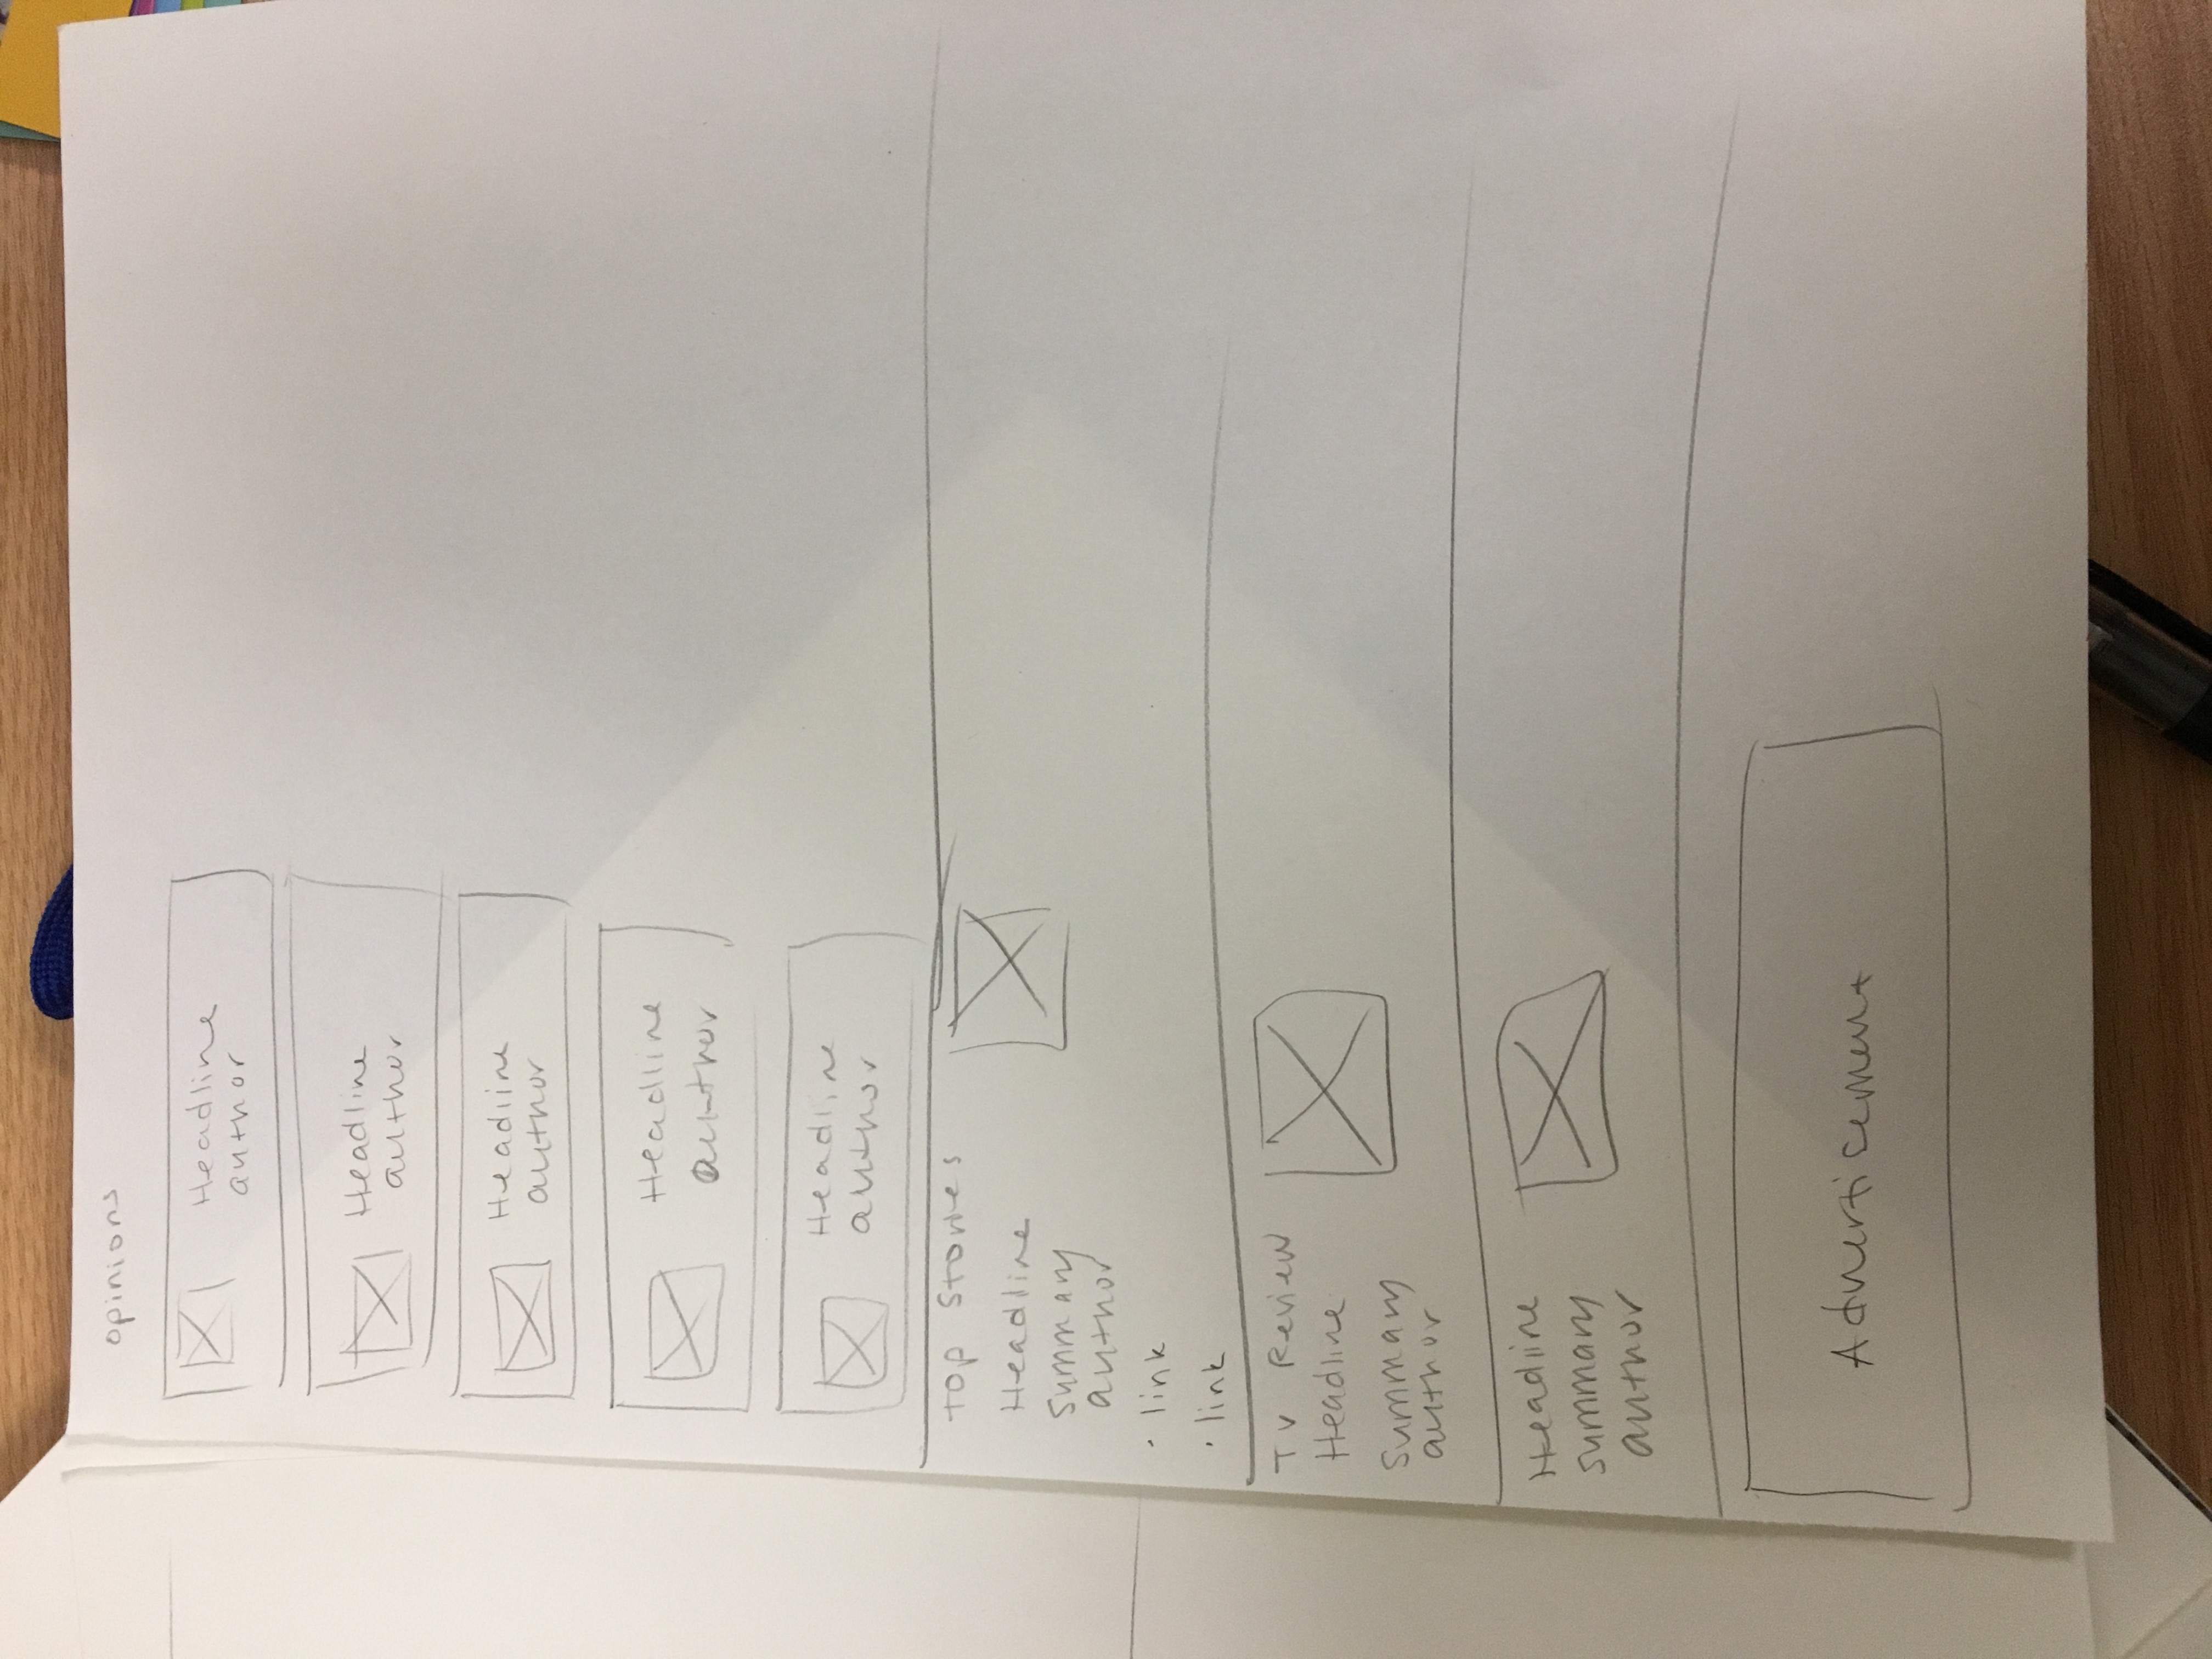 opinions
Headline
author
Headline
author
Headline
author
Headline
author
Headline
author
Top Stories
Headline
Summary
author
· link
· link
TV Review
Headline
Summary
author
Headline
summary
author
Advertisement